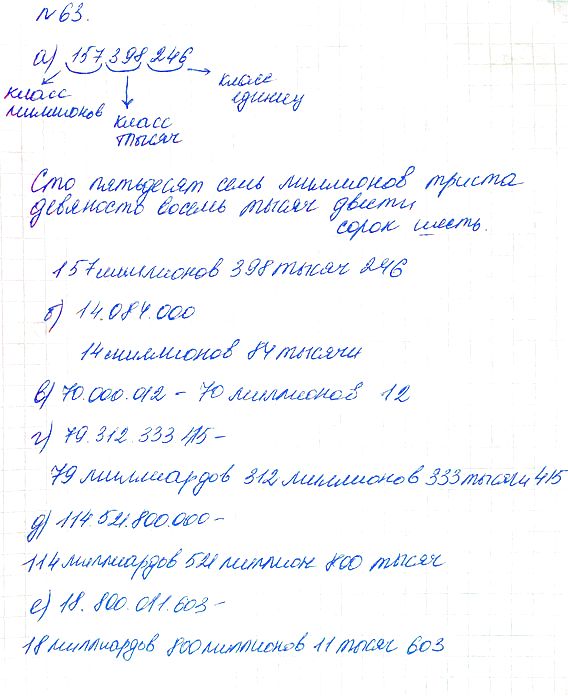 №63.
а) 157 398 246
класс миллионов
класс тысяч
класс единиц
Сто пятьдесят семь миллионов триста
девяность восемь тысяч двести
сорок шесть.
157 миллионов 398 тысяч 246
б) 14.084.000
14 миллионов 84 тысячи
в) 70.000.012 - 70 миллионов 12
г) 79.312.333 415 -
79 миллиардов 312 миллионов 333 тысячи 415
д) 114 521.800.000 -
114 миллиардов 521 миллион 800 тысяч
е) 18.800.011.603 -
18 миллиардов 800 миллионов 11 тысяч 603